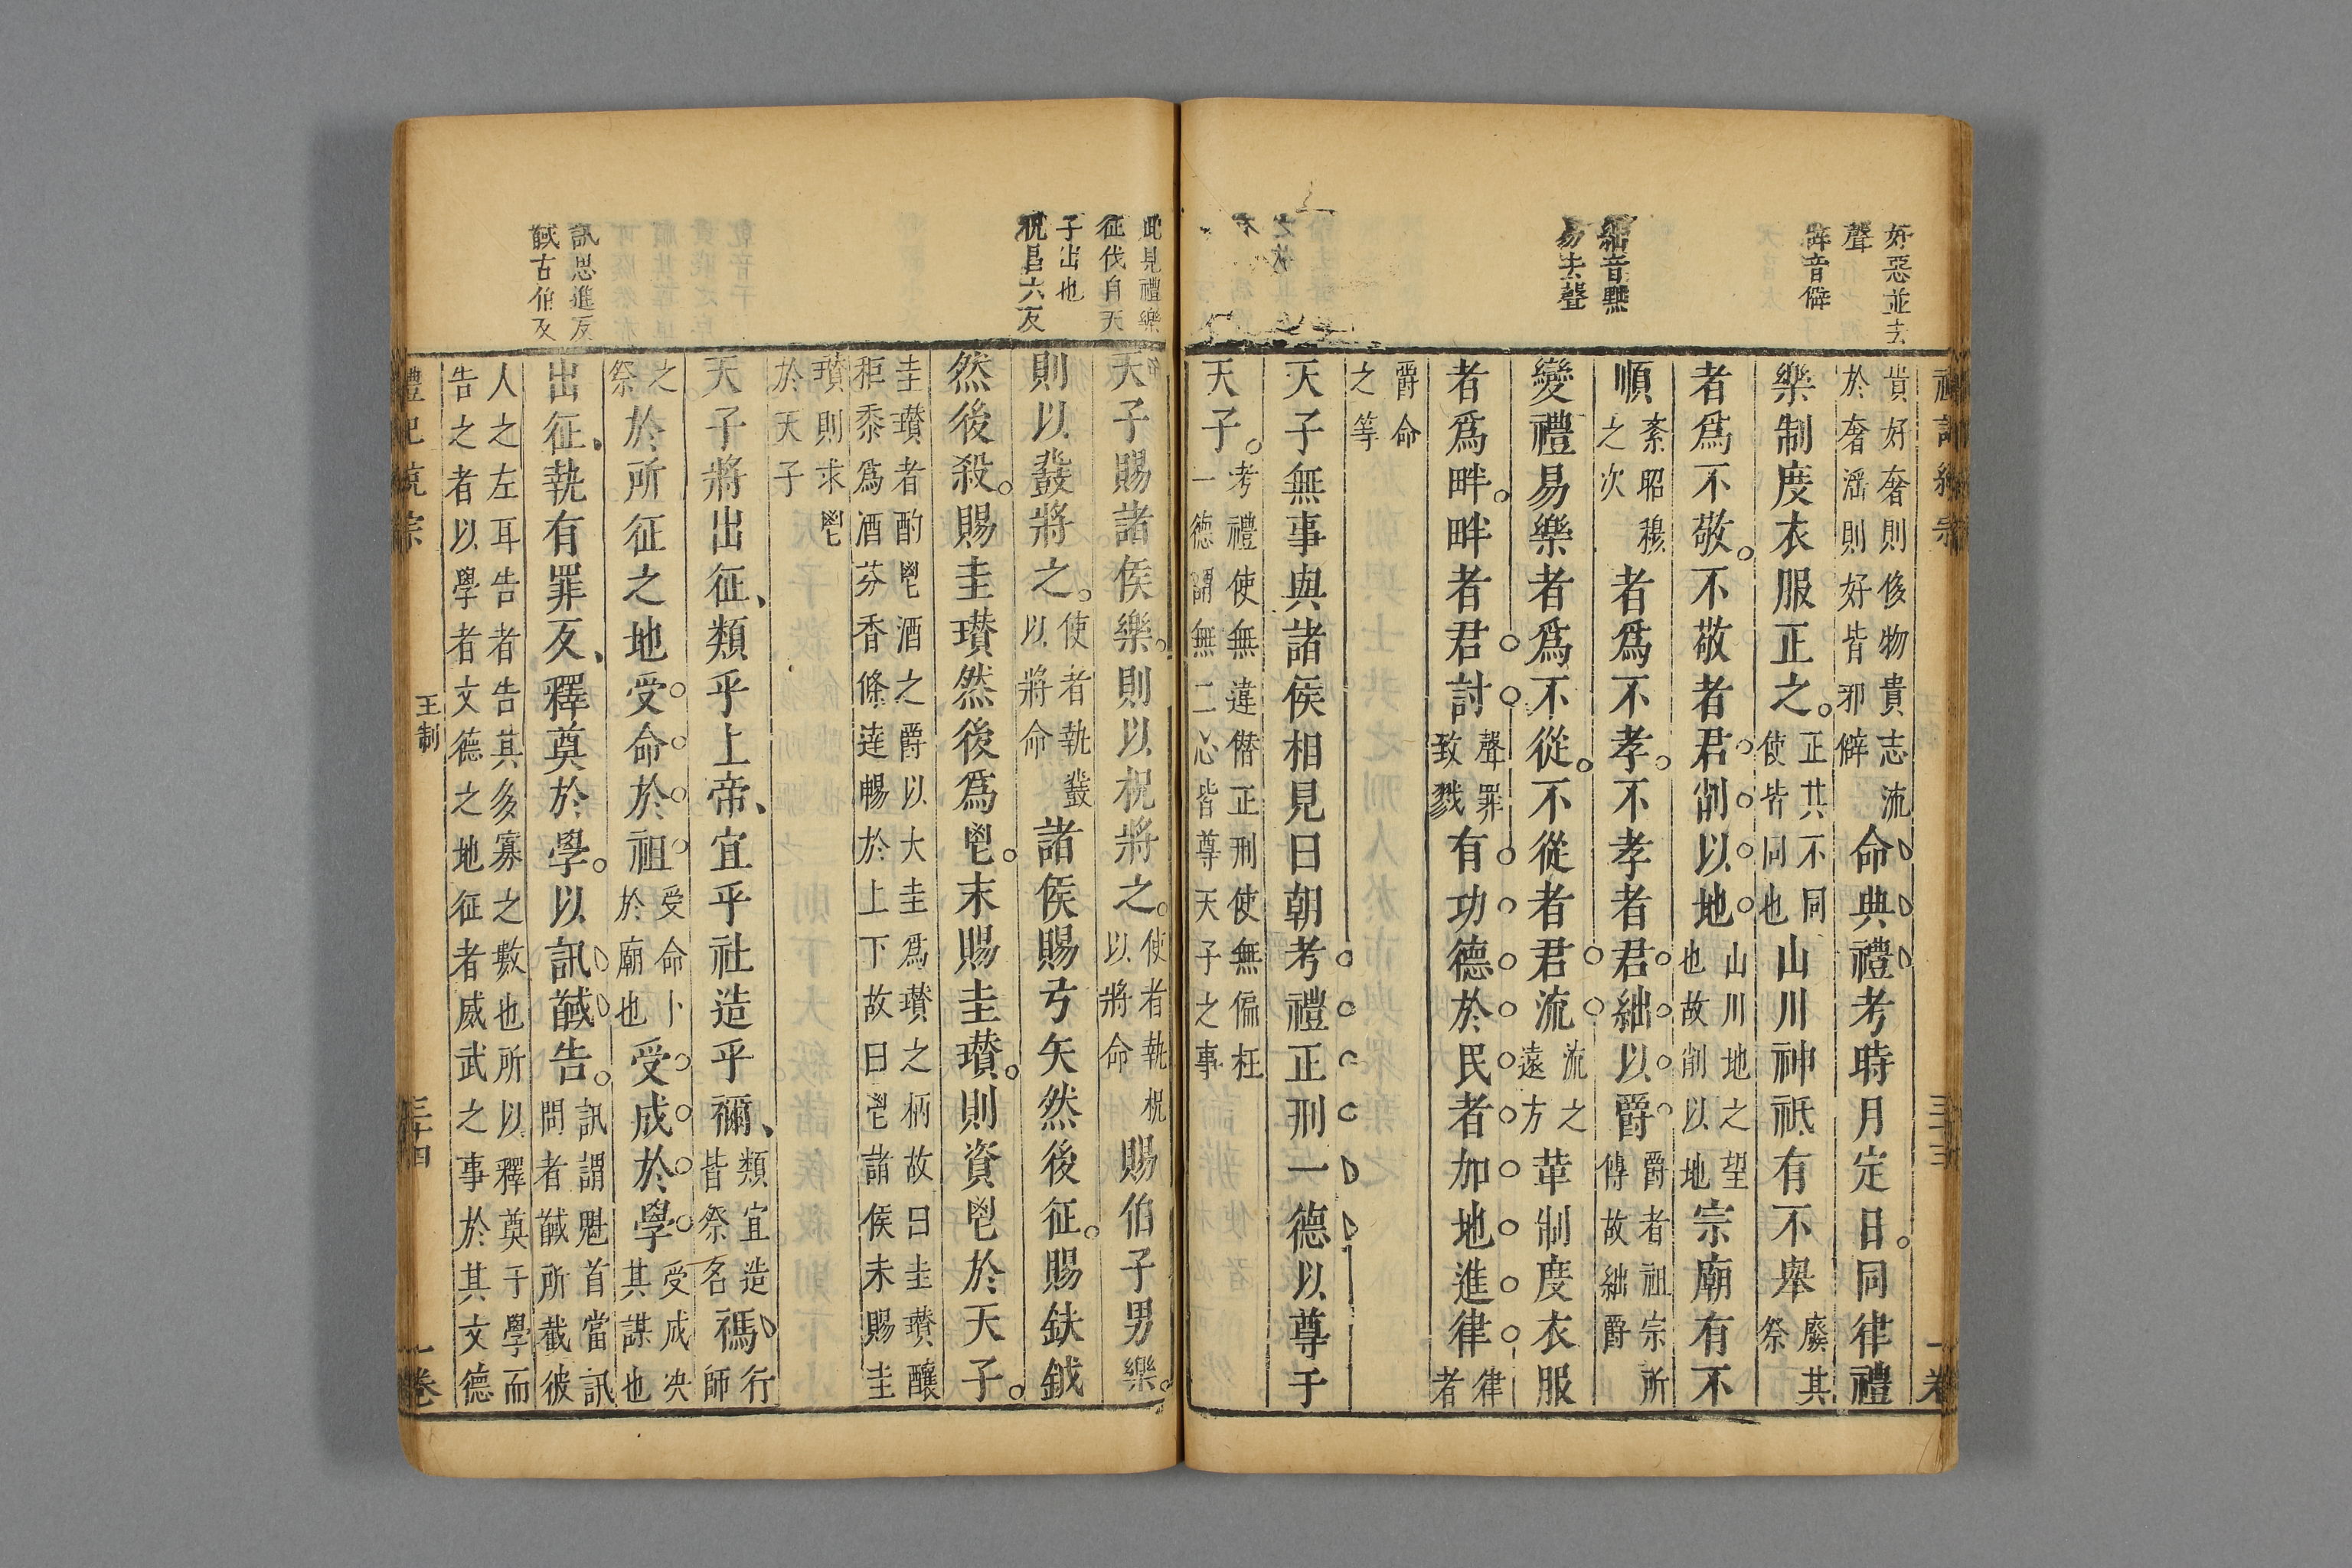 好惡並去
聲
辟音僻
絀音黜
易去聲
貴好奢則侈物貴志流
於奢滛則好皆邪僻
命典禮考時月定日。同律禮
樂制度衣服正之。正其不同
使皆同也
山川神祇有不舉廢其
祭
者爲不敬。不敬者君削以地山川地之望
也故削以地
宗廟有不
順紊昭穆
之次
者爲不孝。不孝者君絀以爵爵者祖宗所
傳故絀爵
變禮易樂者爲不從。不從者君流流之
遠方
革制度衣服
者爲畔。畔者君討聲罪
致戮
有功德於民者加地進律律者
爵命
之等
天子無事與諸侯相見曰朝考禮正刑一德以尊于
天子。考禮使無違僣正刑使無偏枉
一德謂無二心皆尊天子之事
此見禮樂
征伐自天
子出也
柷昌六反
訊思進反
馘古伯反
天子賜諸侯樂。則以柷將之。使者執柷
以將命
賜伯子男樂。
則以鼗將之。使者執鼗
以將命
諸侯賜弓矢然後征。賜鈇鉞
然後殺。賜圭瓚然後爲鬯。未賜圭瓚。則資鬯於天子。
圭瓚者酌鬯酒之爵以大圭爲瓚之柄故曰圭瓚釀
秬黍爲酒芬香條達暢於上下故曰鬯諸侯未賜圭
瓚則求鬯
於天子
天子將出征、類乎上帝、宜乎社造乎禰、類宜造
皆祭名
禡行師
之
祭
於所征之地受命於祖受命卜
於廟也
受成於學受成決
其謀也
出征、執有罪反、釋奠於學。以訊馘告。訊謂魁首當訊
問者馘所截彼
人之左耳告者告其多寡之數也所以釋奠于學而
告之者以學者文德之地征者威武之事於其文德
王制
三十四
一卷